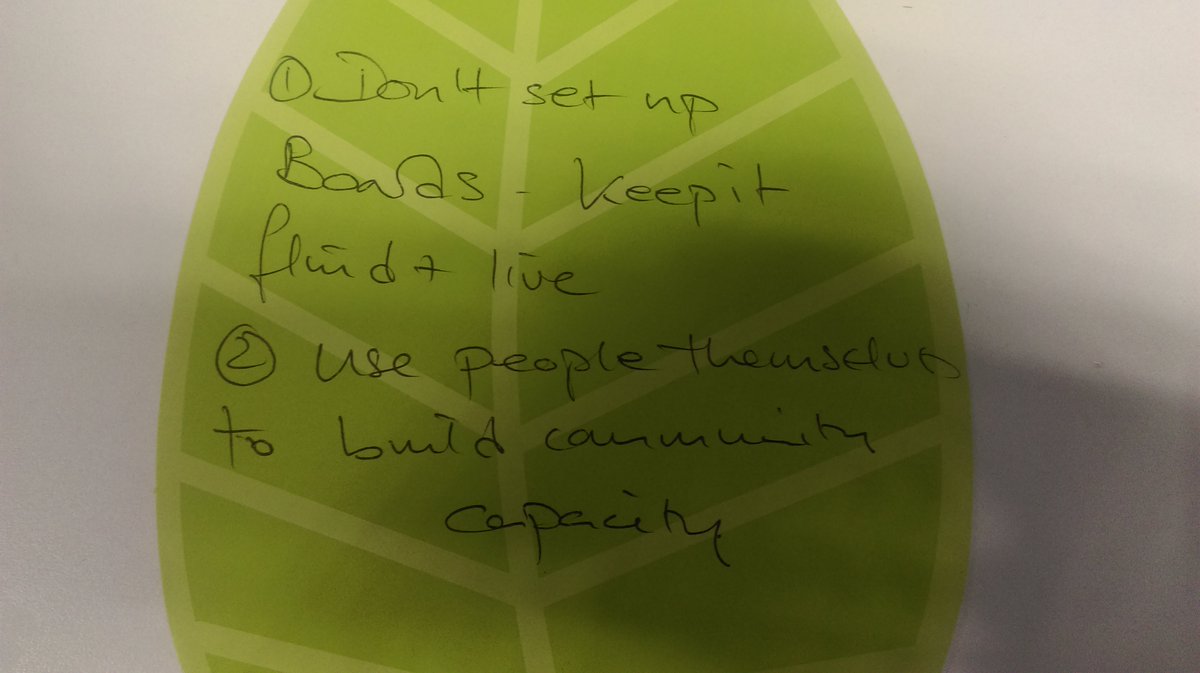 ① Don't set up
Boards - keep it
fluid + live
② use people themselves
to build community
capacity